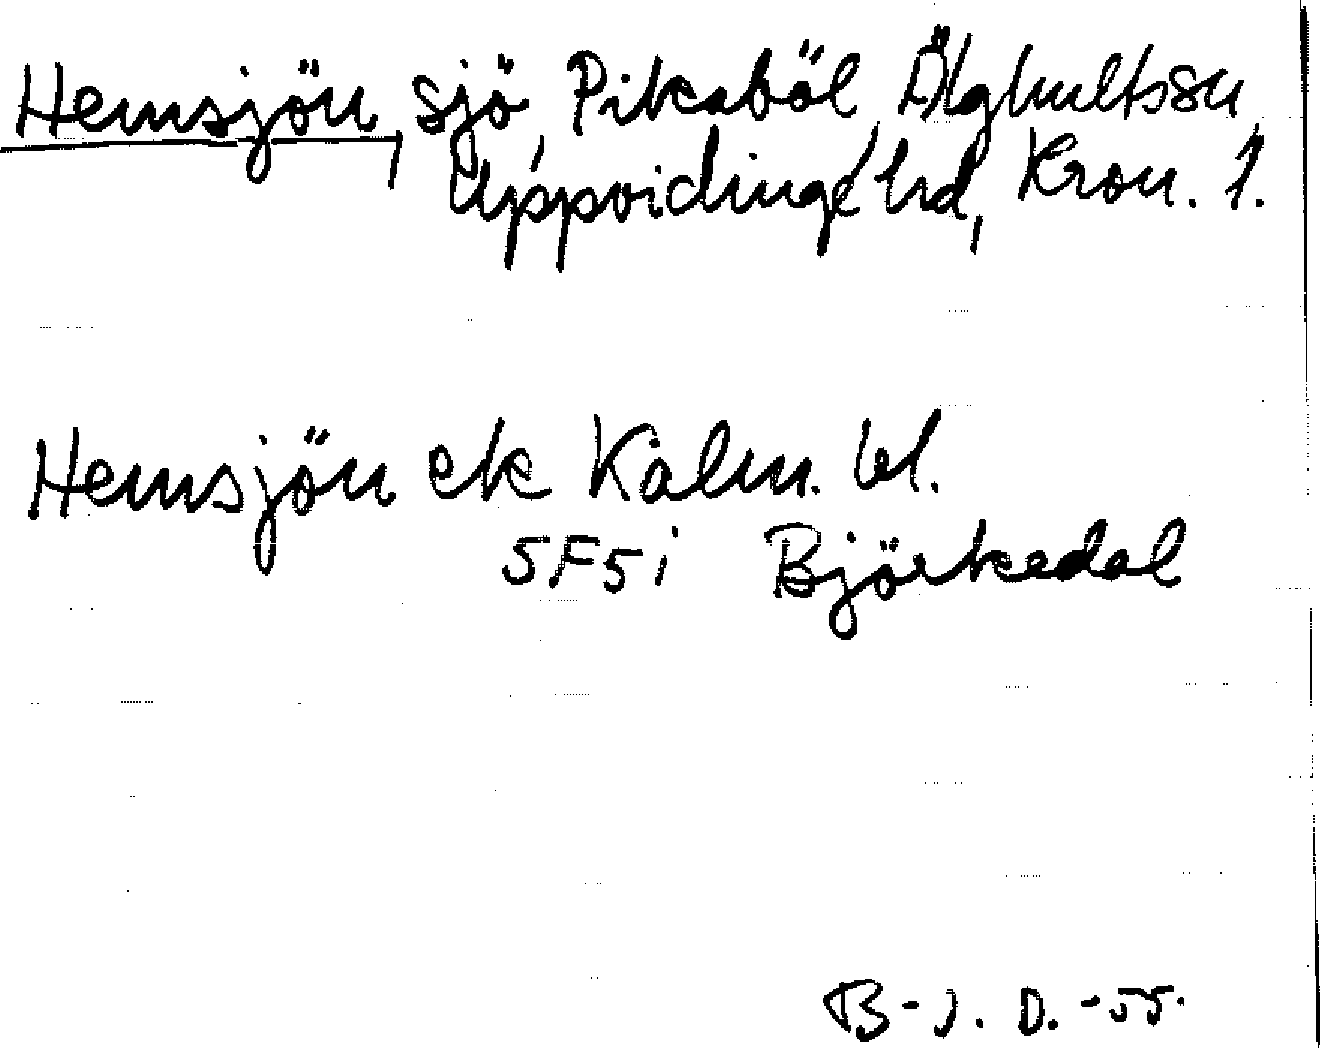 Hemsjön, sjö, Pikaböl, Älghults sn,
Uppvidinge hd, Kron. l.
Hemsjön ek Kalm. bl.
5F5i Björkedal
B-J. D. -55.